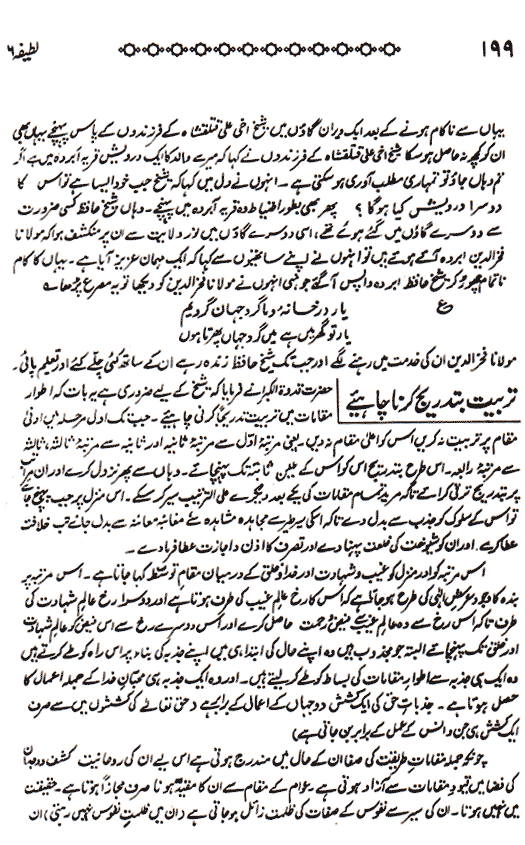 ۱۹۹ لطیفہ ۶
یہاں سے ناکام ہونے کے بعد ایک ویران گاؤں میں شیخ اخی علی قتلقشاہ کے فرزندوں کے پاس پہنچے یہاں بھی
ان کو کچھ نہ حاصل ہو سکا شیخ اخی علی قتلقشاہ کے فرزندوں نے کہا کہ میرے والد کا ایک درویش قریہ ابردہ میں ہے اگر
تم وہاں جاؤ تو تمہاری مطلب آوری ہو سکتی ہے۔ انہوں نے دل میں کہا کہ شیخ جب خود ایسا ہے تو اس کا
دوسرا درویش کیا ہوگا ؟ پھر بھی بطور احتیاط وہ قریہ ابردہ میں پہنچے۔ وہاں شیخ حافظ کسی ضرورت
سے دوسرے گاؤں میں گئے ہوئے تھے، اسی دوسرے گاؤں میں نور ولایت سے ان پر منکشف ہوا کہ مولانا
فخرالدین ابردہ آئے ہوئے ہیں تو انہوں نے اپنے ساتھیوں سے کہا کہ ایک مہمان عزیز آیا ہے۔ یہاں کا کام
ناتمام چھوڑ کر شیخ حافظ ابردہ واپس آ گئے جو نہی انہوں نے مولانا فخرالدین کو دیکھا تو یہ مصرع پڑھا۔
ع یار در خانہ و ما گرد جہان گردیم
یار تو گھر میں ہے میں گرد جہاں پھرتا ہوں
مولانا فخرالدین ان کی خدمت میں رہنے لگے اور جب تک شیخ حافظ زندہ رہے ان کے ساتھ کئی چلے کئے اور تعلیم پائی۔
تربیت بتدریج کرنا چاہئے
حضرت قدوۃ الکبرا نے فرمایا کہ شیخ کے لیے ضروری ہے یہ بات کہ اطوار
مقامات میں تربیت تدریجاً کرنی چاہئیے۔ جب تک اول مرحلہ میں ادنیٰ
مقام پر تربیت نہ کریں اس کو اعلیٰ مقام نہ دیں۔ یعنی مرتبۂ اول سے مرتبۂ ثانیہ اور ثانیہ سے مرتبۂ ثالثہ، ثالثہ
سے مرتبۂ رابعہ۔ اس طرح بتدریج اس کو اس کے عین ثابتہ تک پہنچائے۔ وہاں سے پھر نزول کرے اور ان مراتب
پر بتدریج ترقی کرائے تاکہ مرید تمام مقامات کی یکے بعد دیگرے علی الترتیب سیر کر سکے۔ اس منزل پر جب پہنچ جائے
تو اس کے سلوک کو جذب سے بدل دے تاکہ اسکی سیر طیر سے مجاہدہ مشاہدہ سے مغائبہ معائنہ سے بدل جائے تب خلافت
عطا کرے۔ اور ان کو شیوخت کی خلعت پہنا دے اور تصرف کا اذن و اجازت عطا فرمادے۔
اس مرتبہ کو اور منزل کو غیب و شہادت اور خدا و خلق کے درمیان مقام توسّط کہا جاتا ہے۔ اس مرتبہ پر
بندہ کا وجود الٰہی کی طرح ہو جاتا ہے کہ اُس کا رخ عالمِ غیب کی طرف ہوتا ہے اور دوسرا رخ عالمِ شہادت کی
طرف تاکہ اُس رخ سے وہ عالمِ غیب سے فیض و رحمت حاصل کرے اور اُس دوسرے رخ سے اس فیض کو عالمِ شہادت
اور خلق تک پہنچائے البتہ جو مجذوب ہیں وہ اپنے حال کی ابتدا ہی میں اپنے جذبہ کی بناء پر اس راہ کو طے کرتے ہیں
وہ ایک ہی جذبہ سے اطوارِ مقامات کی بساط کو طے کر لیتے ہیں۔ اور وہ ایک جذبہ ہی محبّانِ خدا کے جملہ اعمال کا
حصل ہوتا ہے۔ جذباتِ حق کی ایک کشش دو جہاں کے اعمال کے برابر ہے (حق تعالٰے کی کششوں میں سے صرف
ایک کشش ہی جن و انس کے عمل کے برابر بن جاتی ہے)
چونکہ جملہ مقاماتِ طریقت کی صفا ان کے حال میں مندرج ہوتی ہے اس لیے ان کی روحانیت کشف و وجدان
کی فضا میں قیودِ مقامات سے آزاد ہوتی ہے۔ عوام کے مقام سے ان کا مقیّد ہونا صرف مجازاً ہوتا ہے۔ حقیقت
میں نہیں ہوتا۔ ان کی سیر سے نفوس کے صفات کی ظلمت زائل ہو جاتی ہے (ان میں ظلمتِ نفوس نہیں رہتی) ان